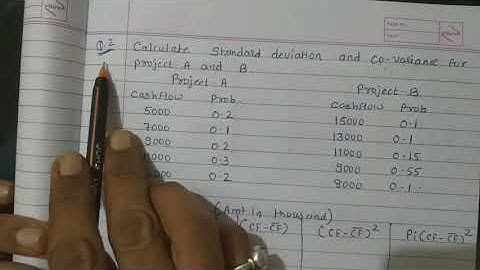 Q.2 Calculate Standard deviation and Co-variance for
project A and B.
Project A
Cashflow Prob.
5000 0.2
7000 0.1
9000 0.2
000 0.3
000 0.2
Project B
Cashflow Prob
15000 0.1
13000 0.1
11000 0.15
9000 0.55
8000 0.1
(Amt in thousand)
(CF-C̅F̅) (CF-C̅F̅)² Pi(CF-C̅F̅)²